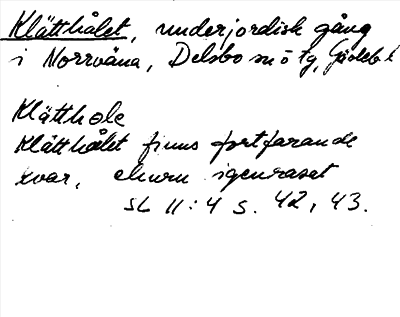 Klätthålet, underjordisk gång
i Norrväna, Delsbo sn ö tg, Gävleb l
Klätthole
Klätthålet finns fortfarande
kvar, ehuru igenrasat
SL 11:4 s. 42, 43.